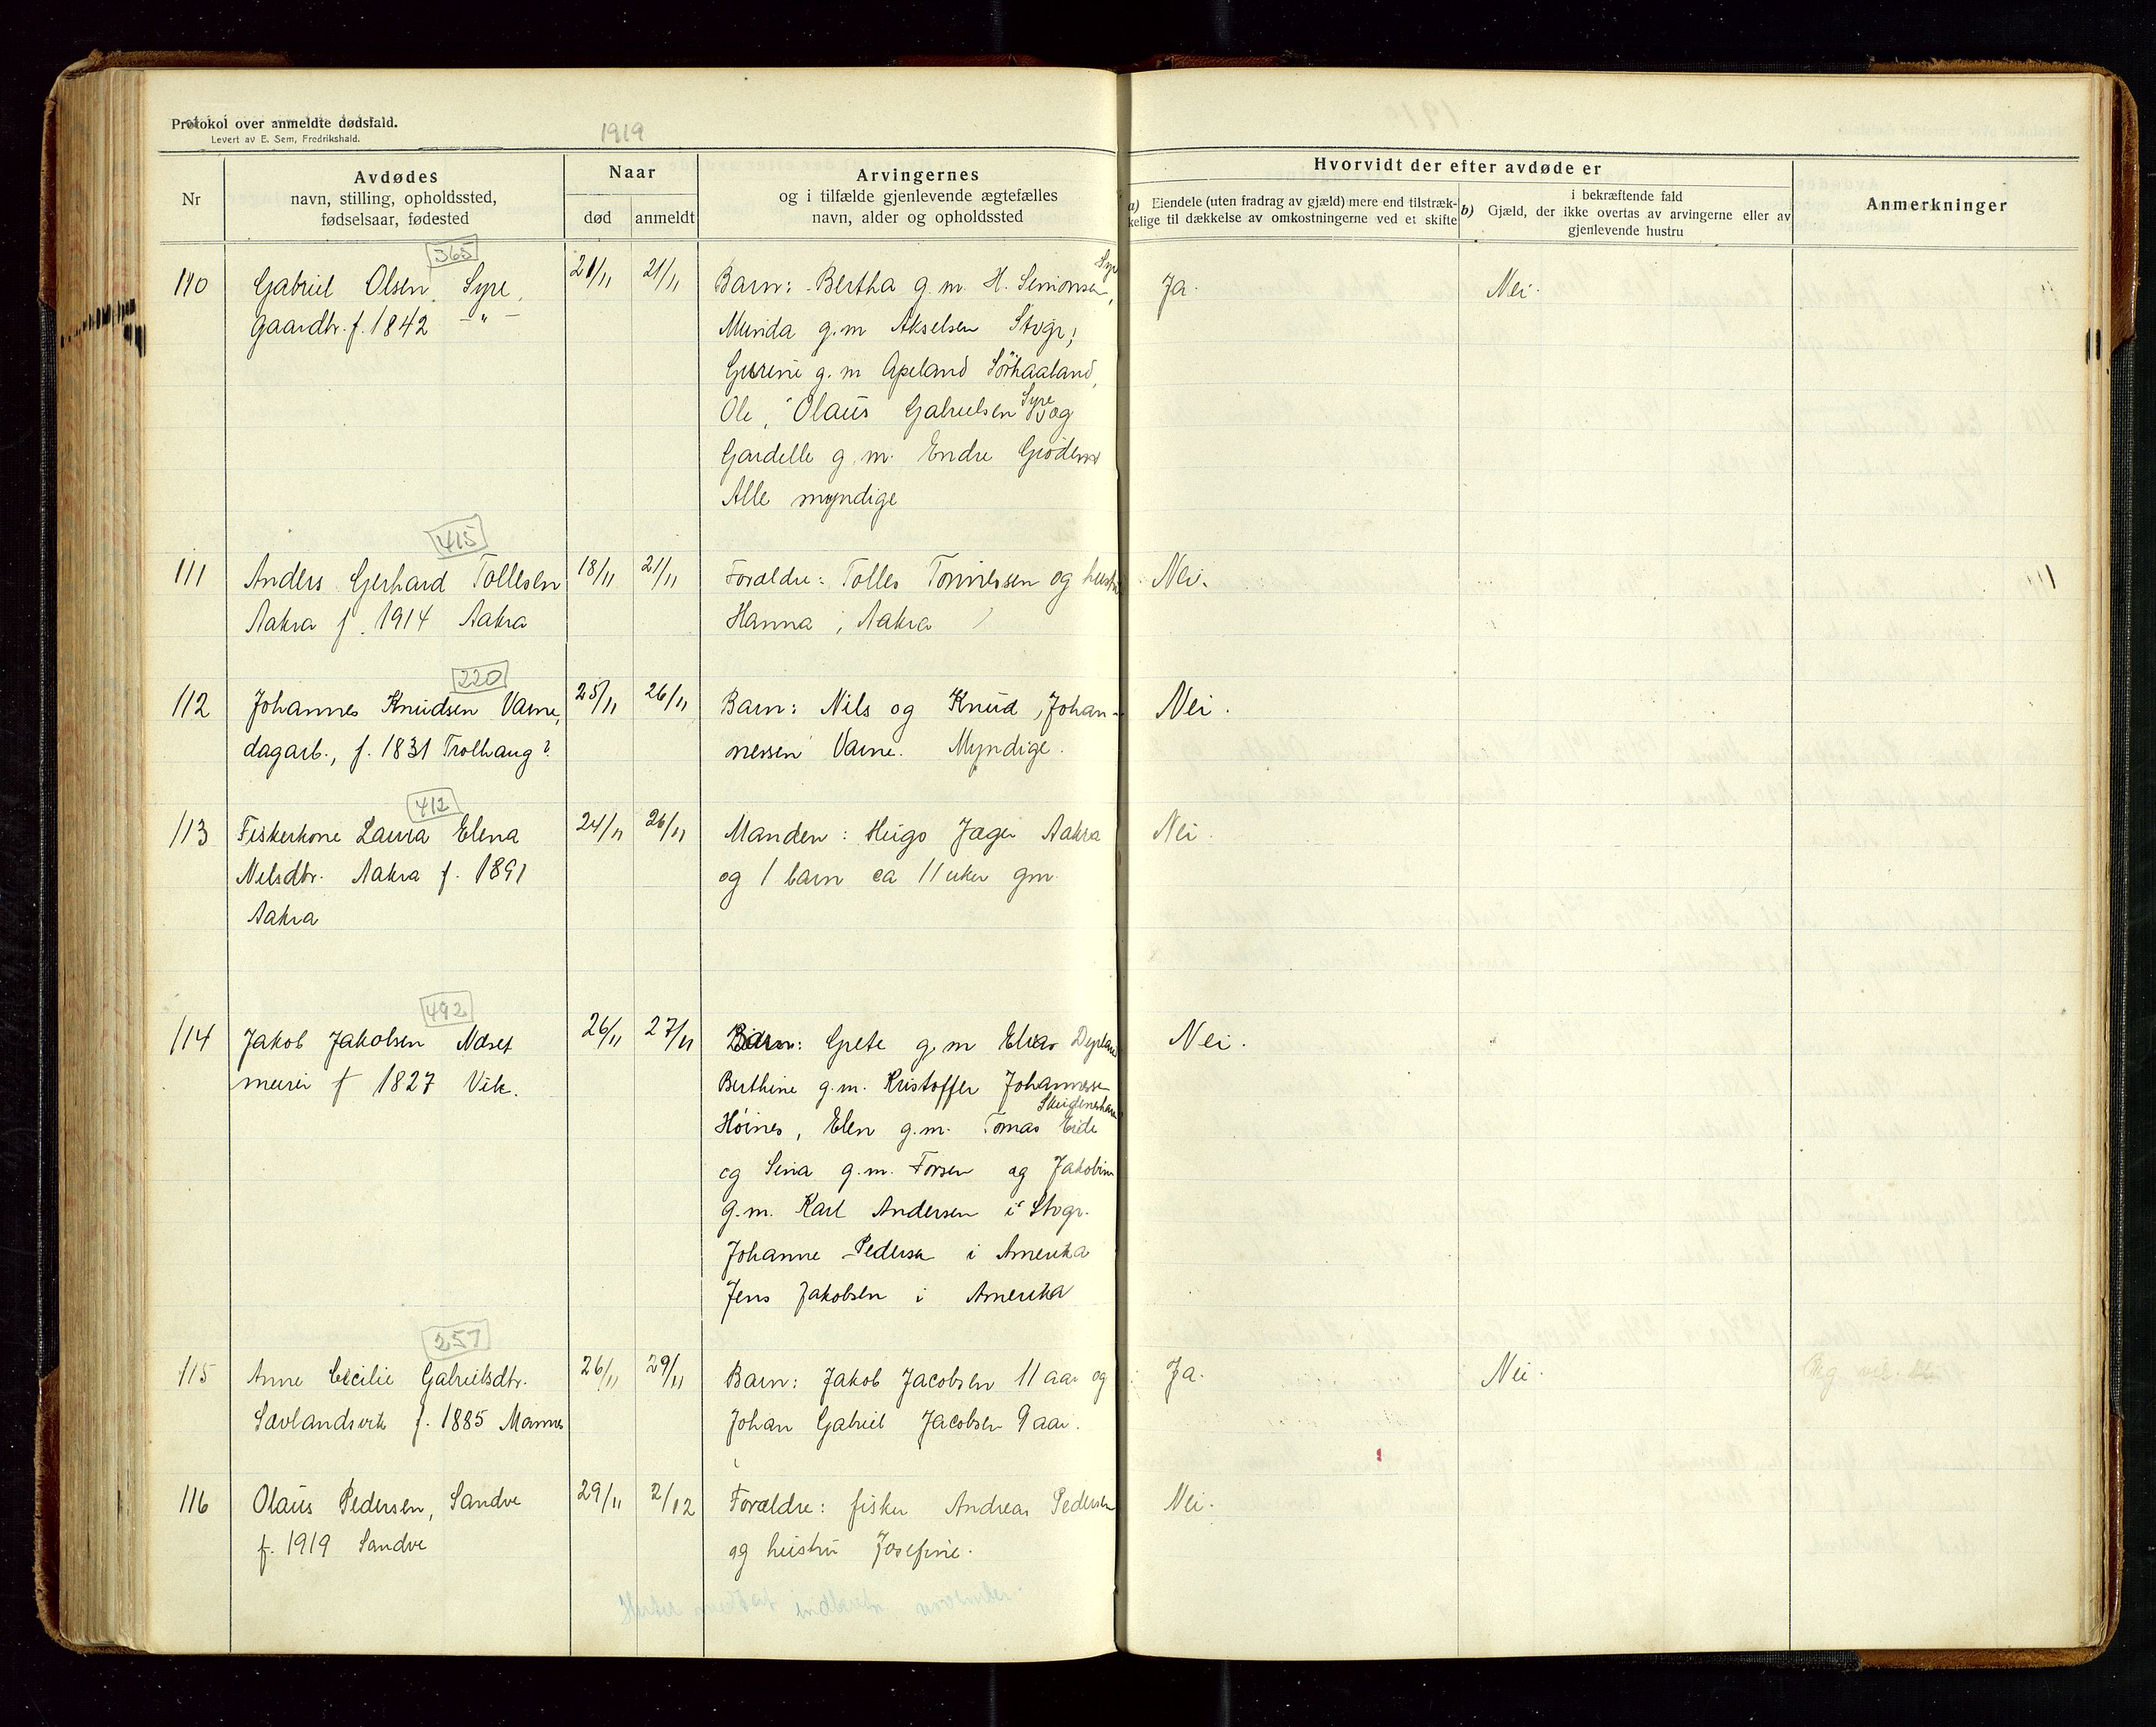 Protokol over anmeldte dødsfald.
Levert av E. Sem, Fredrikshald.
1919
Nr
Avdødes
navn, stilling, opholdssted,
fødselsaar, fødested
Naar
død
anmeldt
Arvingernes
og i tilfælde gjenlevende ægtefælles
navn, alder og opholdssted
Hvorvidt der efter avdøde er
a) Eiendele (uten fradrag av gjæld) mere end tilstræk-
kelige til dækkelse av omkostningerne ved et skifte
b) i bekræftende fald
Gjæld, der ikke overtas av arvingerne eller av
gjenlevende hustru
Anmerkninger
365
110 Gabriel Olsen, Syre, 21/11 21/11 Barn: Bertha g.m. H. Simonsen, Syre Ja. Nei.
Gaardbr. f. 1842 -"- Munda g.m Akselsen Stvgr,
g.m Apeland Sörhaaland,
Ole, Olaus Gabrielsen Syre og
Gardelle g.m. Endre
Alle myndige
415
111 Anders Gerhard Tollesen 18/11 21/11 Foraldre: Tolles Tonnessen og hustru Nei.
Aakra f. 1914 Aakra Hanna, Aakra
220
112 Johannes Knudsen Varne, 25/11 26/11 Barn: Nils og Knud, Johan- Nei.
dagarb., f. 1831 Trolhaug? nessen Varne. Myndige.
412
113 Fiskerkone Laura Elena 24/11 26/11 Manden: Hugo Jæger Aakra Nei.
Nilsdtr. Aakra f. 1891 og 1 barn ca 11 uker gm.
Aakra
492
114 Jakob Jakobsen Næset 26/11 27/11 Barn: Grete g.m Elias Nei.
murer f 1827 Vik. Berthine g.m. Kristoffer Johannessen
Skudeneshavn
Höines, Elen g.m. Tomas Eide
og Sina g.m. Forsen og Jakobine
g.m. Karl Andersen i Stvgr.
Johanne Pedersen i Amerika
Jens Jakobsen i Amerika
257
115 Anne Cecilie Gabrielsdtr. 26/11 29/11 Barn: Jakob Jacobsen 11 aar og Ja. Nei.
Sævlandsvik f. 1885 Mannes Johan Gabriel Jacobsen 9 aar.
116 Olaus Pedersen, Sandve 29/11 2/12 Foraldre: fisker Andreas Pedersen Nei.
f. 1919 Sandve og hustru Josefine.